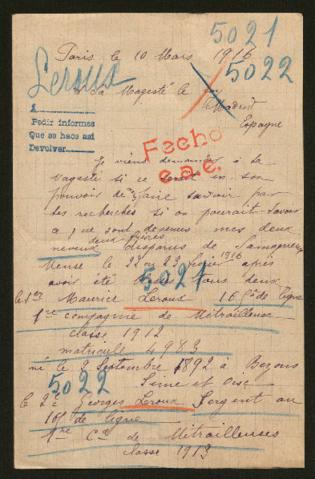 5021
Paris le 10 Mars 1916
Leroux
5022
a Sa Magesté le roy
Madrid
Espagne
1
Pedir informes
Que se haos asi
Devolver
Fecho
e.a.e.
Je viens demander à la
Magesté si ce serait en son
pouvoir de me faire savoir par
ses recherches si on pourait savoir
a que sont devenus mes deux
neveux deux frères disparus de Samogneux
Meuse le 22 ou 23 février 1916 après
avoir été tous deux
5021
le 1er Maurice Leroux 16 de ligne
1re compagnie de Mitrailleuse
classe 1912
matricule 4983
né le 8 Septembre 1892 à Bezons
5022
Seine et Oise
le 2e Georges Leroux Sergent au
de ligne
1re Cie de Mitrailleuses
classe 1913